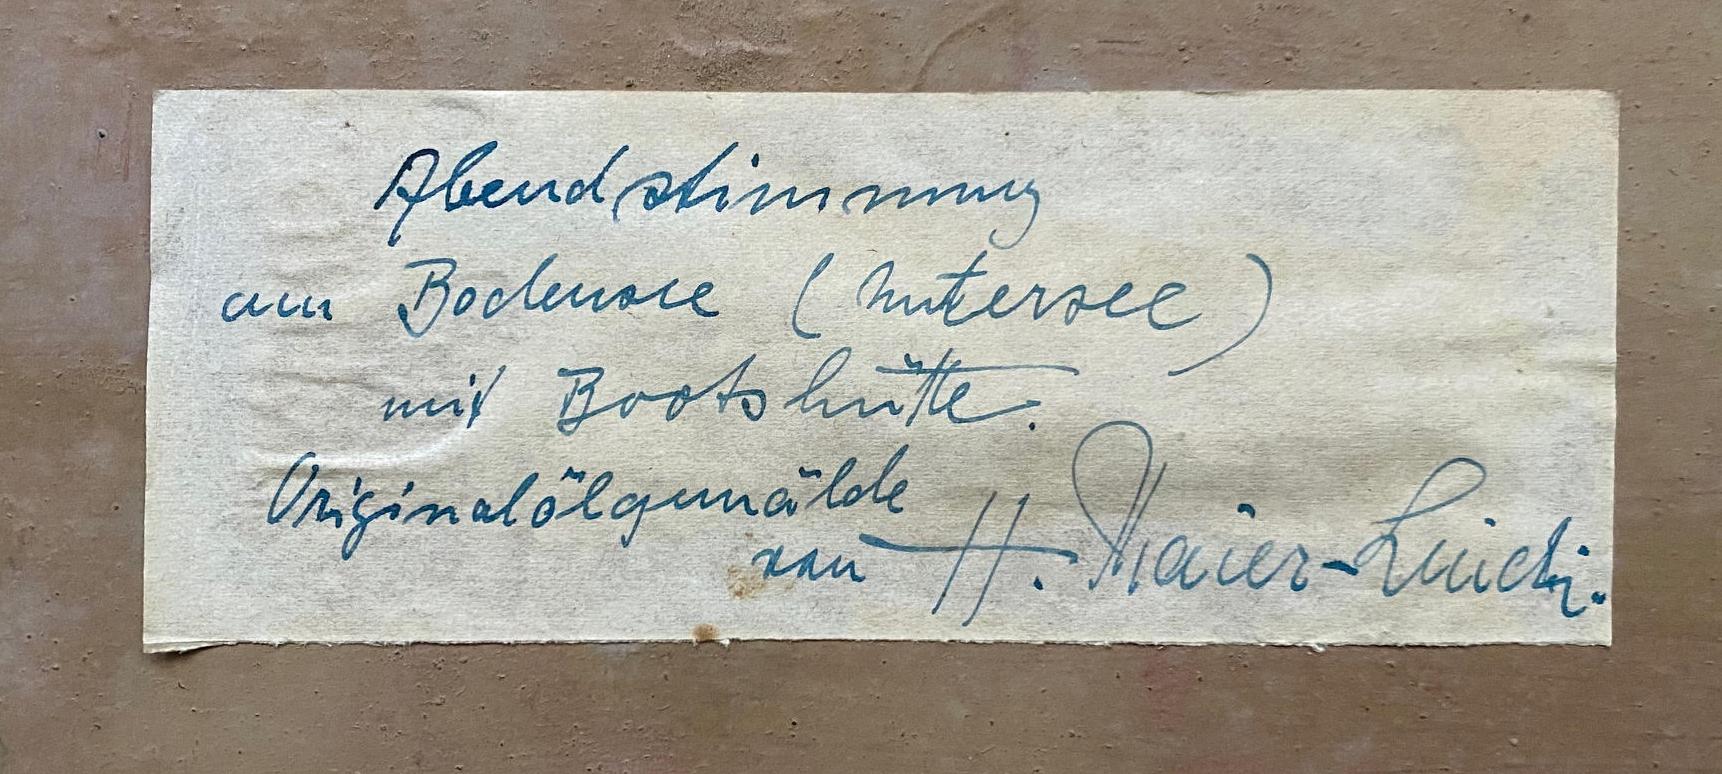 Abendstimmung
am Bodensee (Untersee)
mit Bootshütte.
Originalölgemälde
von H. Maier-